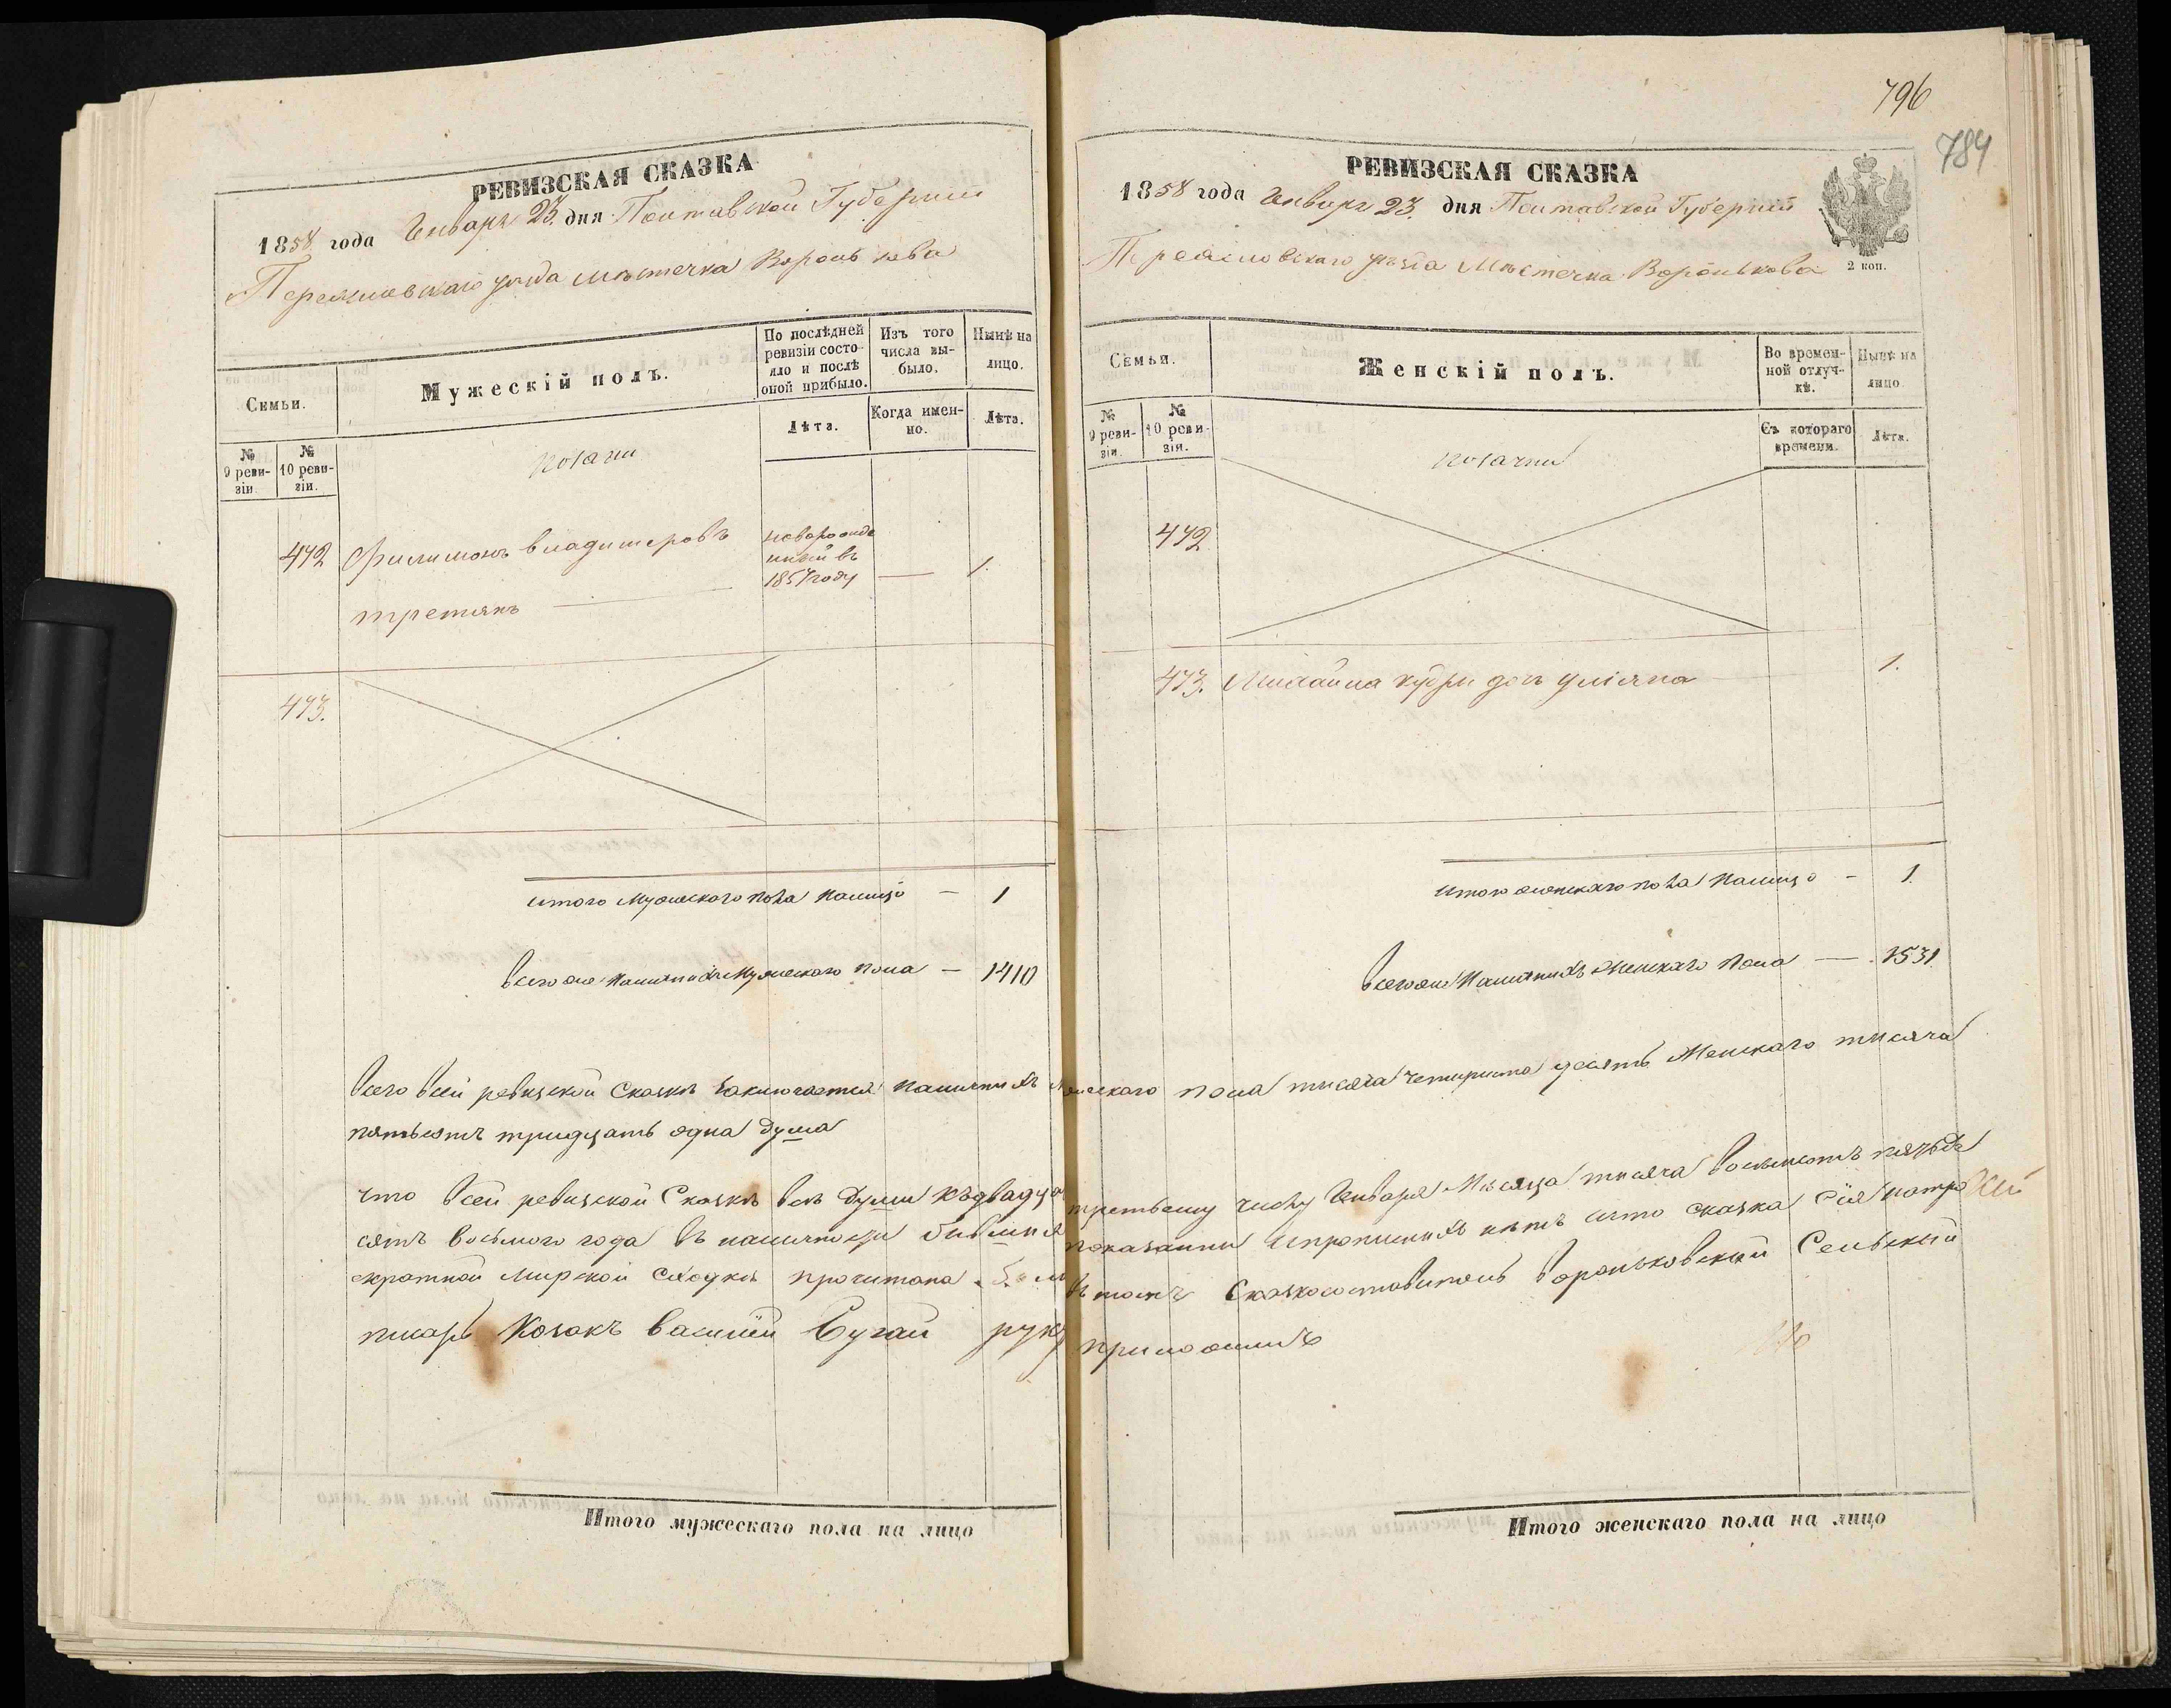 РЕВИЗСКАЯ СКАЗКА
1858 года Генваря 23 дня Полтавской Губернии
Переяславскаго уезда местечка Воронькова
Семьи.
Мужескій полъ.
По послѣдней ревизіи состояло и послѣ оной прибыло.
Изъ того числа выбыло.
Нынѣ на лицо.
Лѣта.
Когда именно.
Лѣта.
№ 9 ревизіи.
№ 10 ревизіи.
козаки
472 Филимонъ владимеровъ
третякъ
новорожде
нный въ
1857 году — 1.
473.
итого Мужескаго пола налицо — 1
всего же наличнихъ Мужескаго пола — 1410
796
784
РЕВИЗСКАЯ СКАЗКА
1858 года Генваря 23. дня Полтавской Губерніи
Переясловскаго уезда Местечка Воронькова
2 коп.
Семьи.
Женскій полъ.
Во временной отлучкѣ.
Нынѣ на лицо.
Съ котораго времени.
Лѣта.
№ 9 ревизіи.
№ 10 ревизіи.
козачки
472
473. Михайла кудри дочь уліяна 1.
итого женскаго пола налицо - 1.
всего же Наличнихъ Женскаго пола — 1531
Всего всей ревизской Сказки заключается наличнихъ мужескаго пола тисяча четириста десять Женскаго тисяча
пятьсотъ тридцать одна душа
что всей ревизской Сказки все души къ двадцать третьему числу Генваря Месяца тисяча восемьсотъ пятьде
сятъ восьмого года въ наличности показанни и прописнихъ нетъ и что сказка сія на
кратной мирской сходки прочитана в томъ Сказкосоставитель вороньковский Сельский
писарь Козакъ василій Бугай руку приложилъ
Итого мужескаго пола на лицо
Итого женскаго пола на лицо